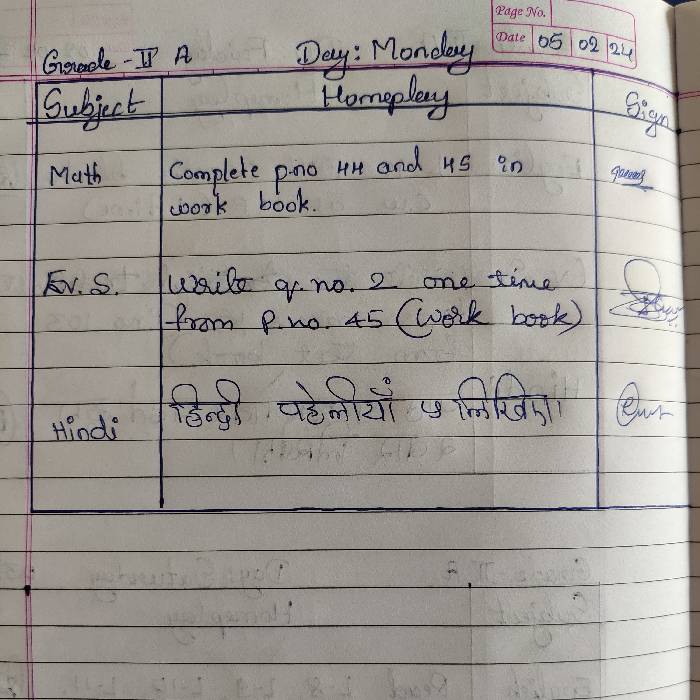 Page No.
Date 05 02 24
Grade - II A Day: Monday
Subject Homeplay Sign
Math Complete p.no 44 and 45 in
work book.
Ev. S. Write q. no. 2 one time
from P. no. 45 (work book)
Hindi हिन्दी पहेलीयाँ ५ लिखिए।